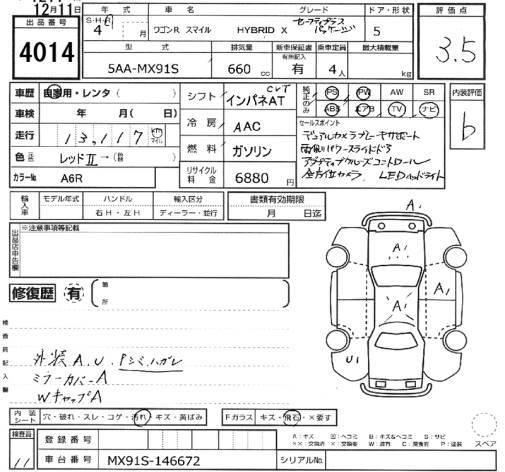 12月11日
出品番号
4014
年式 車名 グレード ドア・形状 評価点
S・H・R 4 月 ワゴンR スマイル HYBRID X セーフティプラスパッケージ 5 3.5
型式 排気量 新車保証書 乗車定員 最大積載量
有無記入
5AA-MX91S 660 cc 有 4人 kg
車歴 自家用・レンタ( ) シフト CVT インパネAT 純正のみ PS PW AW SR 内装評価
ABS エアB TV ナビ b
車検 年 月( 日) 冷房 AAC セールスポイント
走行 13,117 km マイル デュアルカメラブレーキサポート
燃料 ガソリン 両側パワースライドドア
色 レッドⅡ→( ) アダプティブクルーズコントロール
カラーNo. A6R リサイクル料金 6880円 全方位カメラ LEDヘッドライト
輸入車 モデル年式 ハンドル 輸入区分 書類有効期限
右H・左H ディーラー・並行 月 日迄
出品店申告欄 ※注意事項等記載
修復歴 有 箇所
検査員記入欄
外装A.U.Pシミ.ハガレ
ミラーカバーA
WキャップA
A1
A1
A1
A1
U1
内装シート 穴・破れ・スレ・コゲ・汚れ・キズ・黄ばみ Fガラス キズ・飛石・×要す
検査員 11
登録番号
車台番号 MX91S-146672 シリアルNo.
スペア